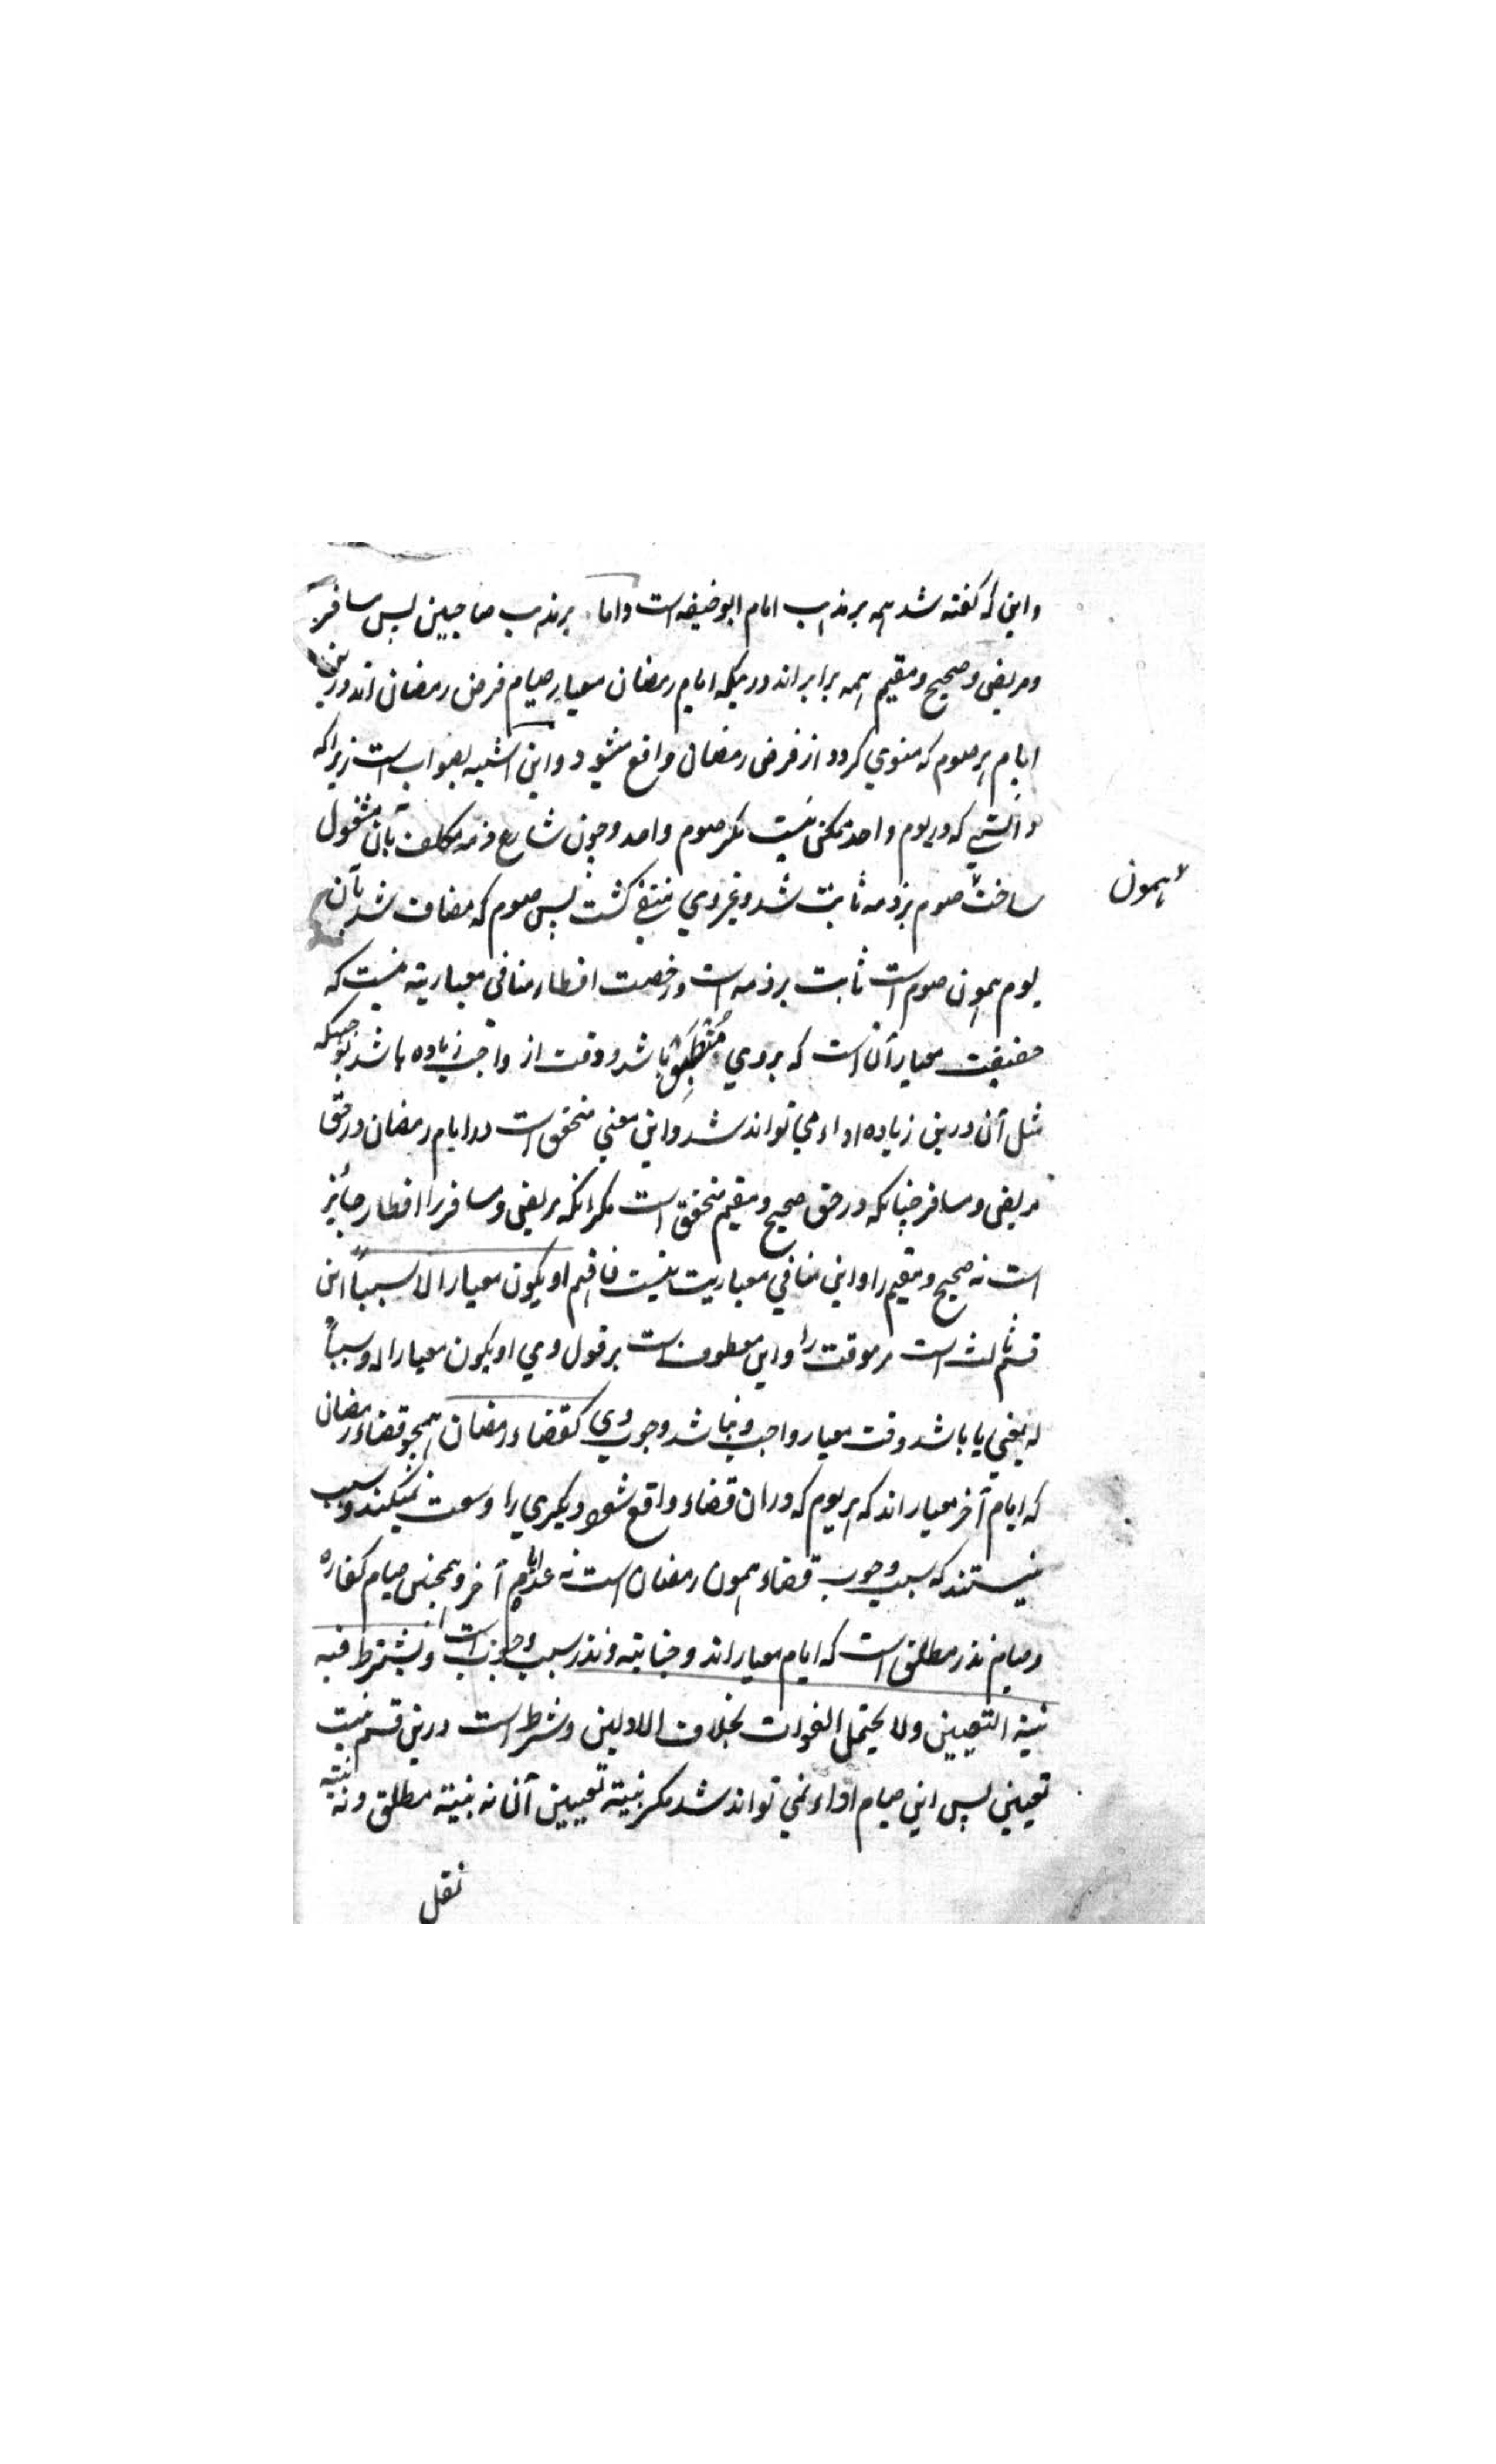 واین که گفته شد همه بر مذهب امام ابو حنیفه است واما بر مذهب صاحبین پس مسافر
ومریض وصحیح ومقیم همه برابر اند در یکه ایام رمضان معیار صیام فرض رمضان اند ودرین
ایام هر صوم که منوی کردد از فرض رمضان واقع میشود واین اشبه بصواب است زیرا که
دانستی که در یوم واحد ممکن نیست مکر صوم واحد وچون شارع ذمه مکلف بآن مشغول
ساخت صوم بر ذمه ثابت شد وغیر وی منتفی کشت پس صوم که مضاف شد بآن
همون
یوم همون صوم است ثابت بر ذمه است ورخصت افطار منافی معیاریة نیست که
حقیقت معیار آن است که بر وی مُنْطَبِق باشد ووقت از واجب زیاده باشد بوجهیکه
مثل آن درین زیاده اداء می تواند شد واین معنی متحقق است در ایام رمضان در حق
مریض ومسافر چنانکه در حق صحیح ومقیم متحقق است مکر انکه مریض ومسافر را افطار جائز
است نه صحیح ومقیم را واین منافی معیاریت نیست فافهم او یکون معیارا لا سبباً این
قسم ثالث است مر موقت را واین معطوف است بر قول وی او یکون معیارا له وسبباً
له یعنی یا باشد وقت معیار واجب ونباشد وجوب وی کقضاء رمضان همچو قضاء رمضان
که ایام آخر معیار اند که هر یوم که در ان قضاء واقع شود دیکری را وسعت نمیکند وسبب
نیستند که سبب وجوب قضاء همون رمضان است نه عدة ایام آخر وهمچنین صیام کفاره
وصیام نذر مطلق است که ایام معیار اند وجنایته ونذر سبب وجوب است ویشترط فیه
نیة التعیین ولا یحتمل الفوات بخلاف الاولین وشرط است درین قسم نیت
تعیین پس این صیام اداء نمی تواند شد مکر بنیة تعیین آن نه بنیة مطلق ونه بنیة
نقل